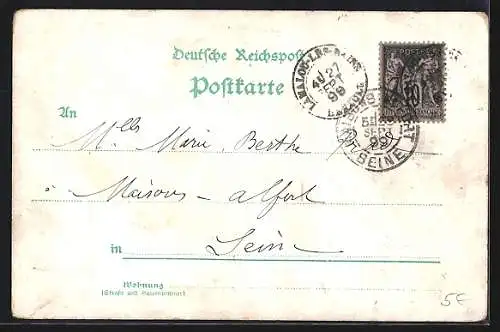 Deutsche Reichspost
Postkarte
LAMALOU-LES-BAINS
4E 27
SEPT
99
HÉRAULT
SEPT
99
SEINE
An
Mlle Marie Berthe
à Maisons-Alfort
in Seine
Wohnung
(Straße und Hausnummer)
5E